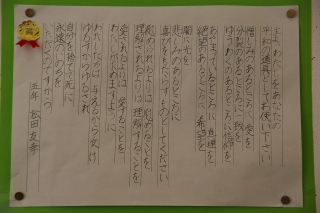 主よ わたしをあなたの
平和の道具としてお使いください
憎しみのあるところに 愛を
分裂のあるところに 一致を
疑いのあるところに 信仰を
あやまっているところに 真理を
絶望のあるところに 希望を
闇に光を
悲しみのあるところに
喜びをもたらすものとしてください
慰められるよりは 慰めることを
理解されるよりは 理解することを
愛されるよりは 愛することを
わたしが求めますように
わたしたちは 与えるから受け
ゆるすからゆるされ
自分を捨てて死に
永遠のいのちを
いただくのですから
五年 松田友幸